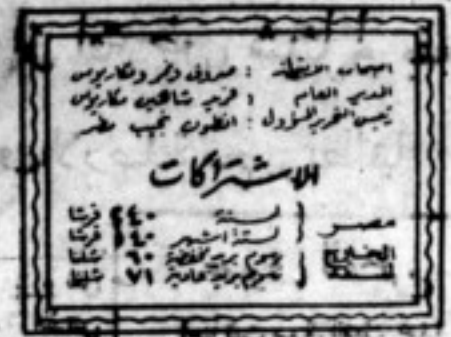 اصحاب الامتياز : صروف ونمر ومكاريوس
المدير العام : فريد شاهين مكاريوس
رئيس التحرير المسؤول : انطون نجيب مطر
الاشتراكات
مصر لسنة ٢٤٠ قرشا
لستة اشهر ١٤٠ قرشا
الخارج لسنة برسوم بريد مخفضة ٦٠ شلنا
برسوم بريد عادية ٧١ شلنا